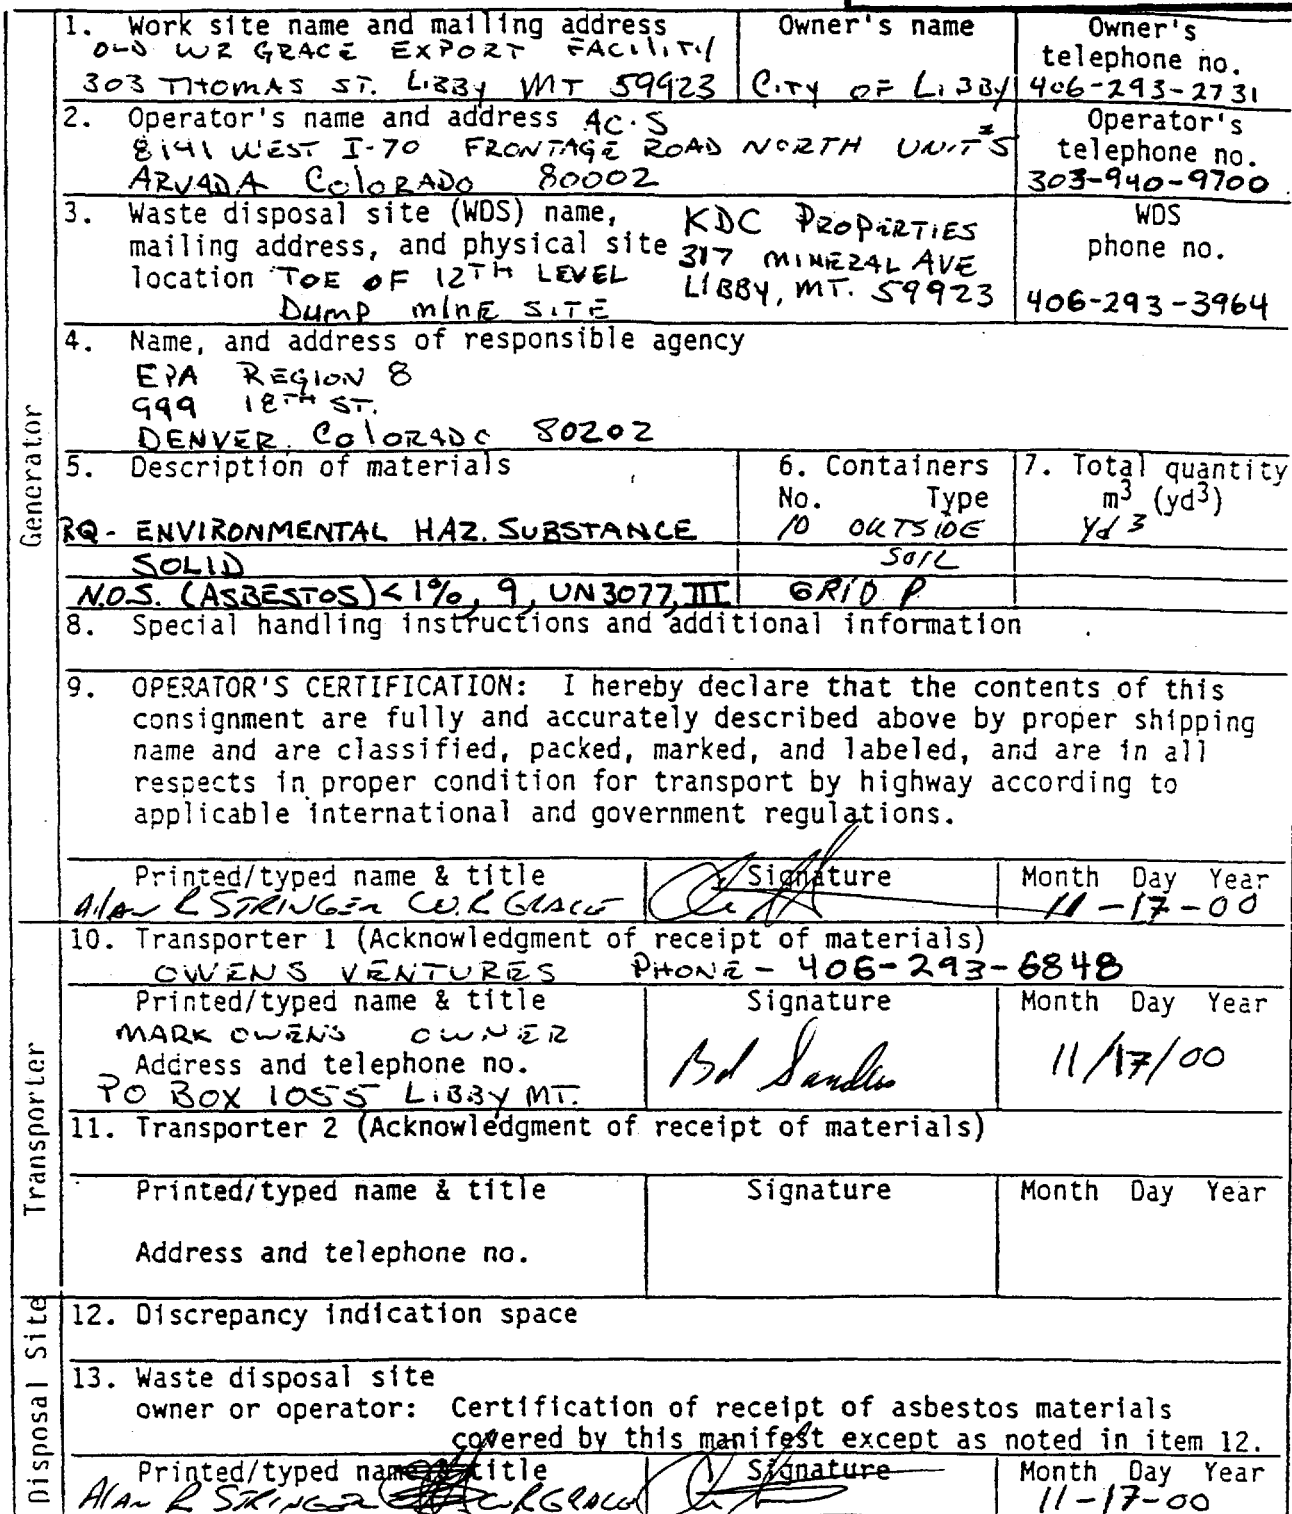 1. Work site name and mailing address
OLD WR GRACE EXPORT FACILITY
303 THOMAS ST. LIBBY MT 59923
Owner's name
CITY OF LIBBY
Owner's
telephone no.
406-293-2731
2. Operator's name and address AC·S
8141 WEST I-70 FRONTAGE ROAD NORTH UNIT #5
ARVADA COLORADO 80002
Operator's
telephone no.
303-940-9700
3. Waste disposal site (WDS) name,
mailing address, and physical site
location TOE OF 12TH LEVEL
DUMP MINE SITE
KDC PROPERTIES
317 MINERAL AVE
LIBBY, MT. 59923
WDS
phone no.
406-293-3964
4. Name, and address of responsible agency
EPA REGION 8
999 18TH ST.
DENVER, COLORADO 80202
Generator
5. Description of materials
RQ - ENVIRONMENTAL HAZ. SUBSTANCE
SOLID
N.O.S. (ASBESTOS) < 1%, 9, UN3077, III
6. Containers
No. Type
10 OUTSIDE
SOIL
GRID P
7. Total quantity
m3 (yd3)
Yd 3
8. Special handling instructions and additional information
9. OPERATOR'S CERTIFICATION: I hereby declare that the contents of this
consignment are fully and accurately described above by proper shipping
name and are classified, packed, marked, and labeled, and are in all
respects in proper condition for transport by highway according to
applicable international and government regulations.
Printed/typed name & title
Alan R STRINGER W.R GRACE
Signature
Month Day Year
11-17-00
Transporter
10. Transporter 1 (Acknowledgment of receipt of materials)
OWENS VENTURES PHONE - 406-293-6848
Printed/typed name & title
MARK OWENS OWNER
Address and telephone no.
PO BOX 1055 LIBBY MT.
Signature
Month Day Year
11/17/00
11. Transporter 2 (Acknowledgment of receipt of materials)
Printed/typed name & title
Signature
Month Day Year
Address and telephone no.
Disposal Site
12. Discrepancy indication space
13. Waste disposal site
owner or operator: Certification of receipt of asbestos materials
covered by this manifest except as noted in item 12.
Printed/typed name & title
Alan R STRINGER W.R GRACE
Signature
Month Day Year
11-17-00